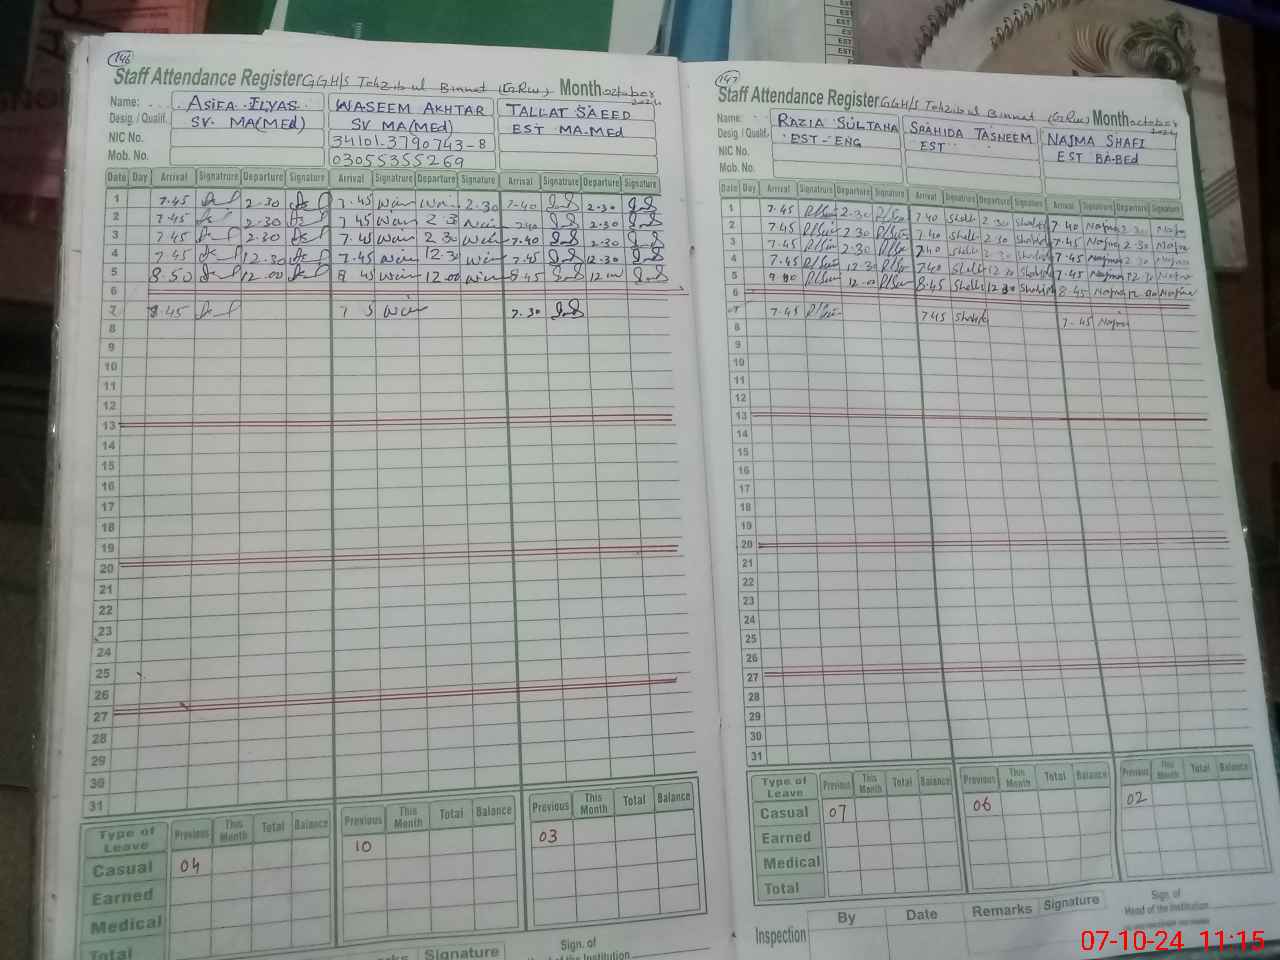 146
Staff Attendance Register GGH/S Tehzibul Binnat (GRW) Month October 2024
Name: ASIFA ILYAS WASEEM AKHTAR TALLAT SAEED
Desig. / Qualif. SV. MA(MEd) SV MA(MEd) EST MA-MEd
NIC No. 34101-3790743-8
Mob. No. 03055355269
Date Day Arrival Signature Departure Signature Arrival Signature Departure Signature Arrival Signature Departure Signature
1 7.45 2.30 7.45 2.30 7-40 2-30
2 7.45 2.30 7.45 2.3 7.40 2.30
3 7.45 2.30 7.45 2 30 7.40 2.30
4 7.45 12.30 7.45 12.3 7.45 12.30
5 8.50 12.00 8 45 12.00 8.45 12
6
7 8.45 7 5 7.30
8
9
10
11
12
13
14
15
16
17
18
19
20
21
22
23
24
25
26
27
28
29
30
31
Type of Leave Previous This Month Total Balance Previous This Month Total Balance Previous This Month Total Balance
Casual 04 10 03
Earned
Medical
Total
Signature Sign. of
Head of the Institution
147
Staff Attendance Register GGH/S Tehzibul Binnat (GRW) Month October 2024
Name: RAZIA SULTANA SHAHIDA TASNEEM NAJMA SHAFI
Desig / Qualif. EST-ENG EST EST BA-BEd
NIC No.
Mob. No.
Date Day Arrival Signature Departure Signature Arrival Signature Departure Signature Arrival Signature Departure Signature
1 7.45 2.30 7.40 2 30 7.40 Najma 2 30 Najma
2 7.45 2.30 7.40 2 30 7.45 Najma 2.30 Najma
3 7.45 2.30 7.40 2 30 7.45 Najma 2.30 Najma
4 7.45 12.30 7.40 12 30 7.45 Najma 12.30 Najma
5 12.00 8.45 12 30 8.45 Najma 12.00 Najma
6
7 7.45 7.45 7.45 Najma
8
9
10
11
12
13
14
15
16
17
18
19
20
21
22
23
24
25
26
27
28
29
30
31
Type of Leave Previous This Month Total Balance Previous This Month Total Balance Previous This Month Total Balance
Casual 07 06 02
Earned
Medical
Total
Inspection By Date Remarks Signature
Sign. of
Head of the Institution
07-10-24 11:15
EST
EST
EST
EST